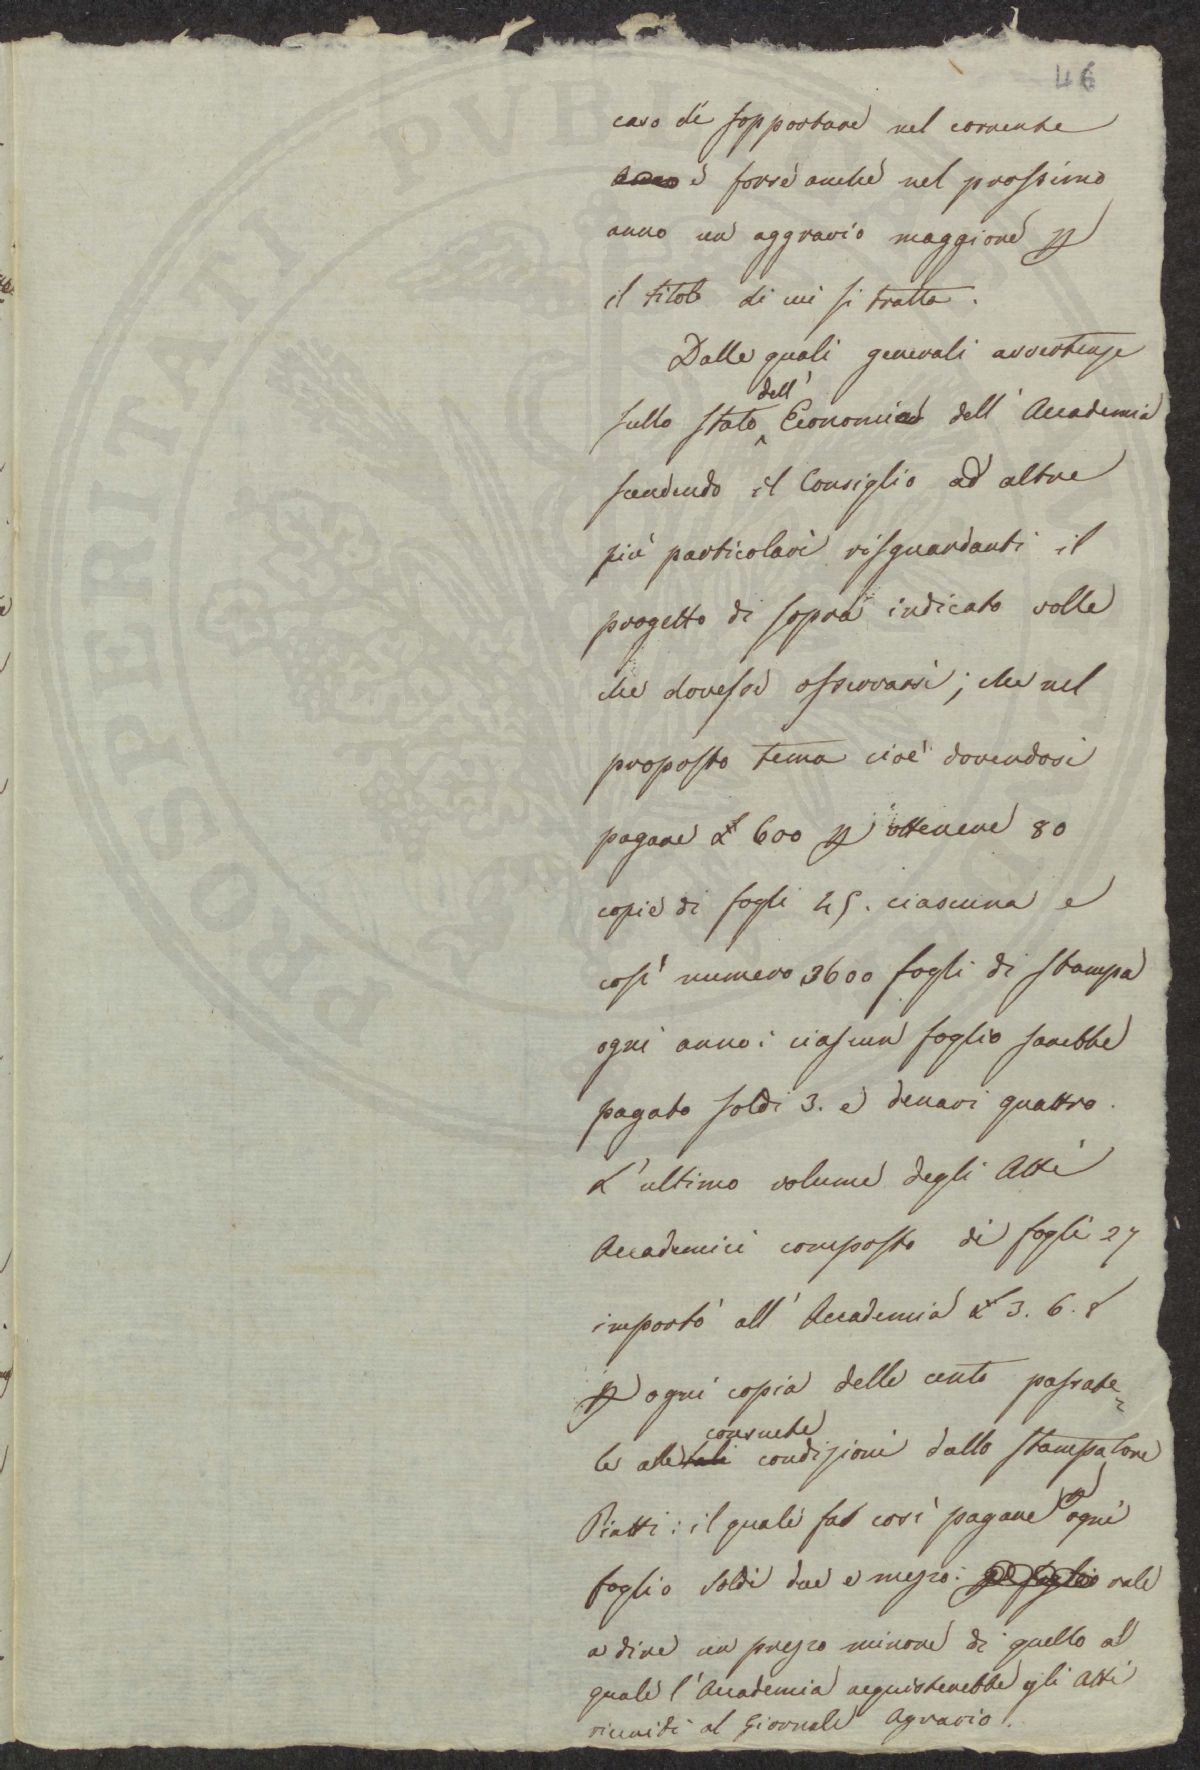 46
caso di sopportare nel corrente
e forse anche nel prossimo
anno un aggravio maggiore p
il titolo di cui si tratta.
Dalle quali generali avvertenze
dell'
sullo stato Economia dell'Accademia
scendendo il Consiglio ad altre
più particolari risguardanti il
progetto di sopra indicato volle
che dovesse osservarsi; che nel
proposto tema cioè dovendosi
pagare £ 600 p ottenere 80
copie di fogli 45. ciascuna e
così numero 3600 fogli di stampa
ogni anno: ciascun foglio sarebbe
pagato soldi 3. e denari quattro.
L'ultimo volume degli Atti
Accademici composto di fogli 27
importò all'Accademia £ 3. 6. 8
p ogni copia delle cento passate
consuete
le condizioni dallo stampatore
p
Piatti: il quale fa così pagare ogni
foglio soldi due e mezzo: vale
a dire un prezzo minore di quello al
quale l'Accademia acquisterebbe gli Atti
riuniti al Giornale Agrario.
PROSPERITATI PVBLICAE